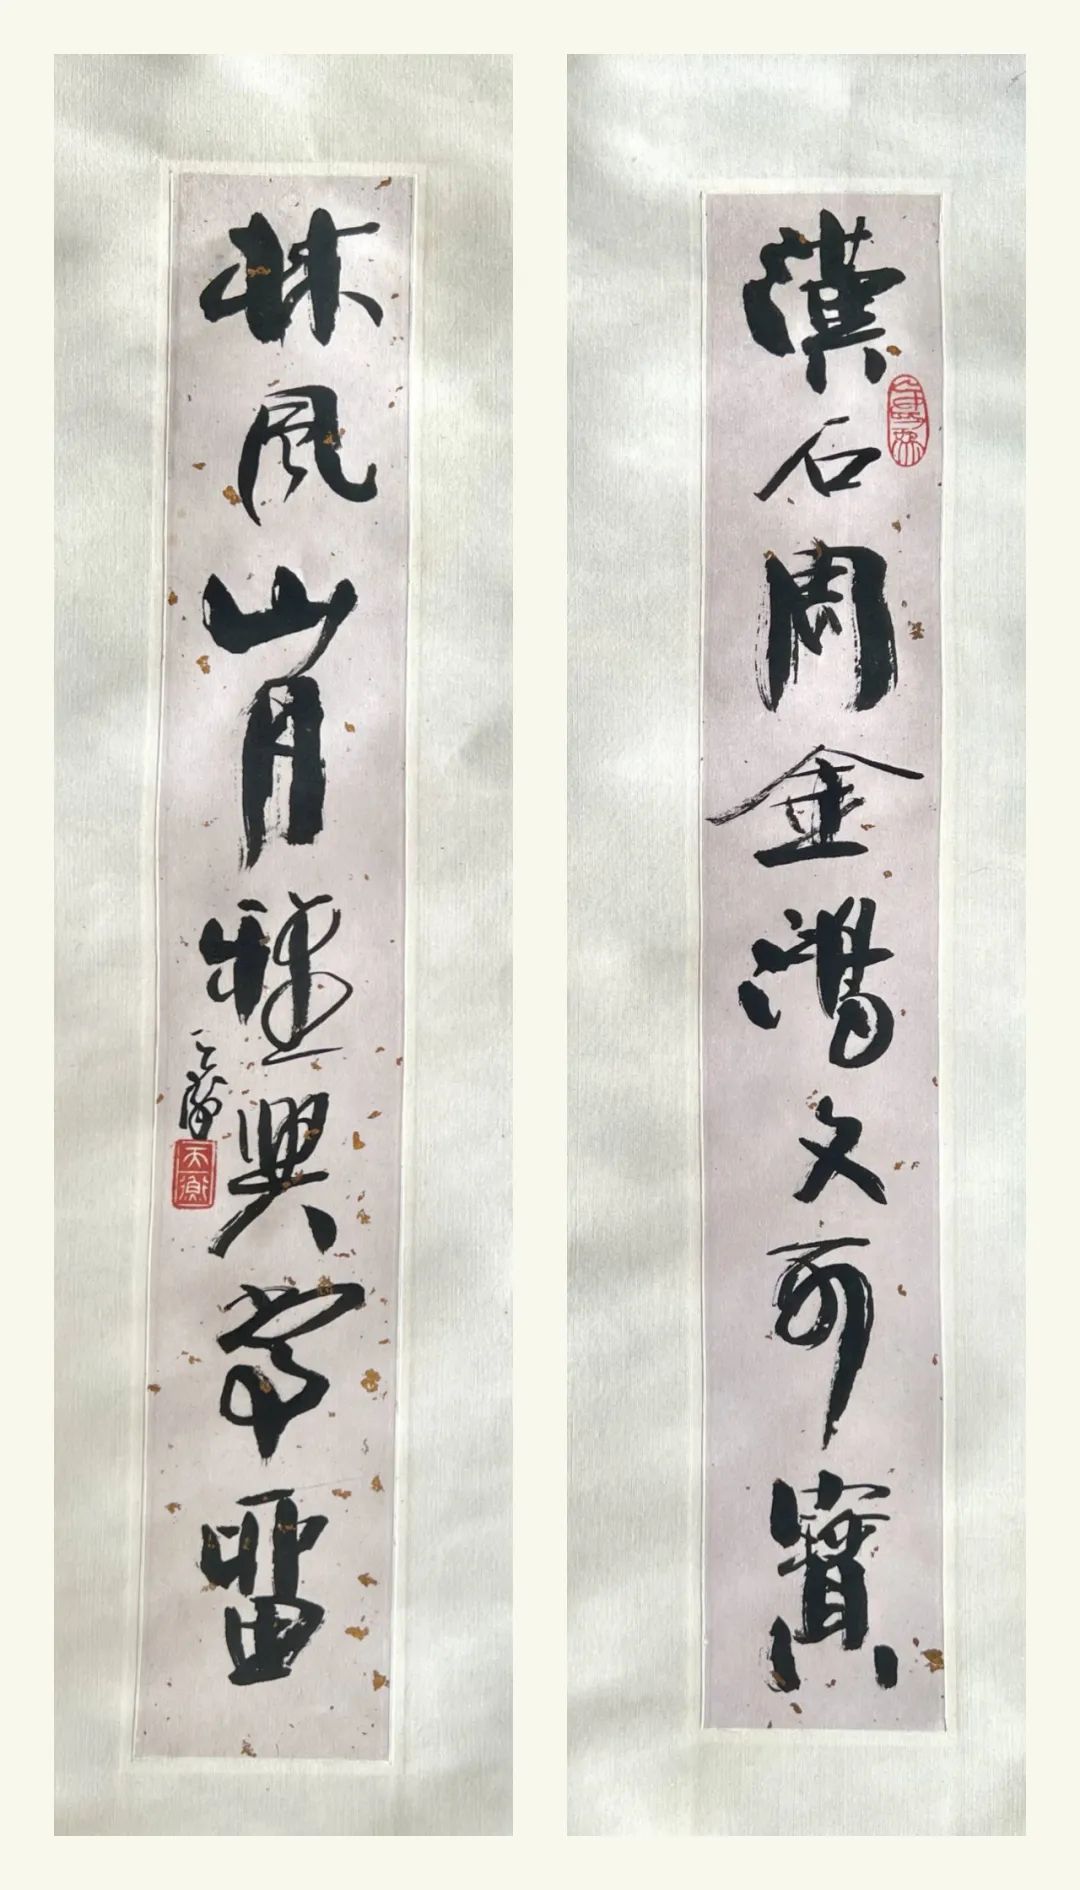 漢石周金鴻文可寶
林風山月雅興常留
天衡
天衡